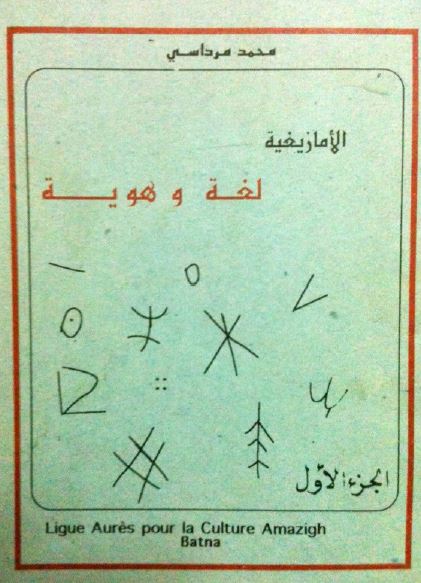 محمد مرداسي
الأمازيغية
لغة و هوية
الجزء الأول
Ligue Aurès pour la Culture Amazigh
Batna